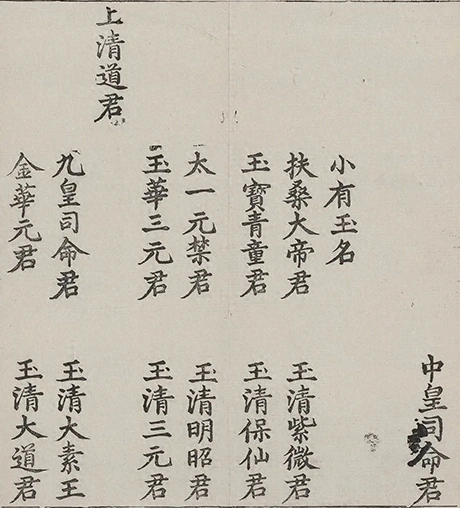 中皇司命君
小有玉名
扶桑大帝君
玉清紫微君
玉寶青童君
玉清保仙君
太一元禁君
玉清明昭君
玉華三元君
玉清三元君
上清道君
九皇司命君
玉清大素王
金華元君
玉清大道君